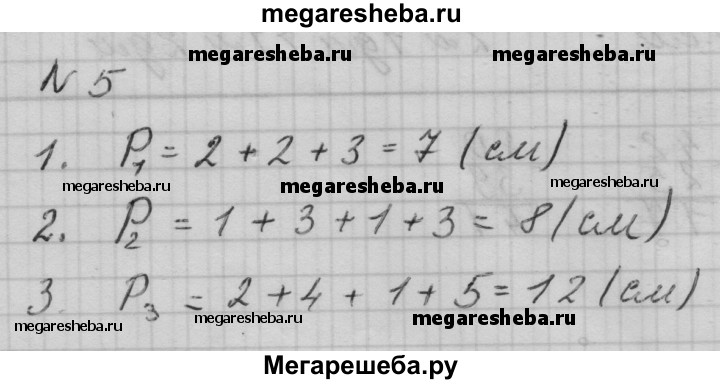 megaresheba.ru
megaresheba.ru megaresheba.ru
№ 5
1. P₁ = 2 + 2 + 3 = 7 (см)
megaresheba.ru megaresheba.ru megaresheba.ru
2. P₂ = 1 + 3 + 1 + 3 = 8 (см)
3. P₃ = 2 + 4 + 1 + 5 = 12 (см)
megaresheba.ru megaresheba.ru megaresheba.ru
Мегарешеба.ру